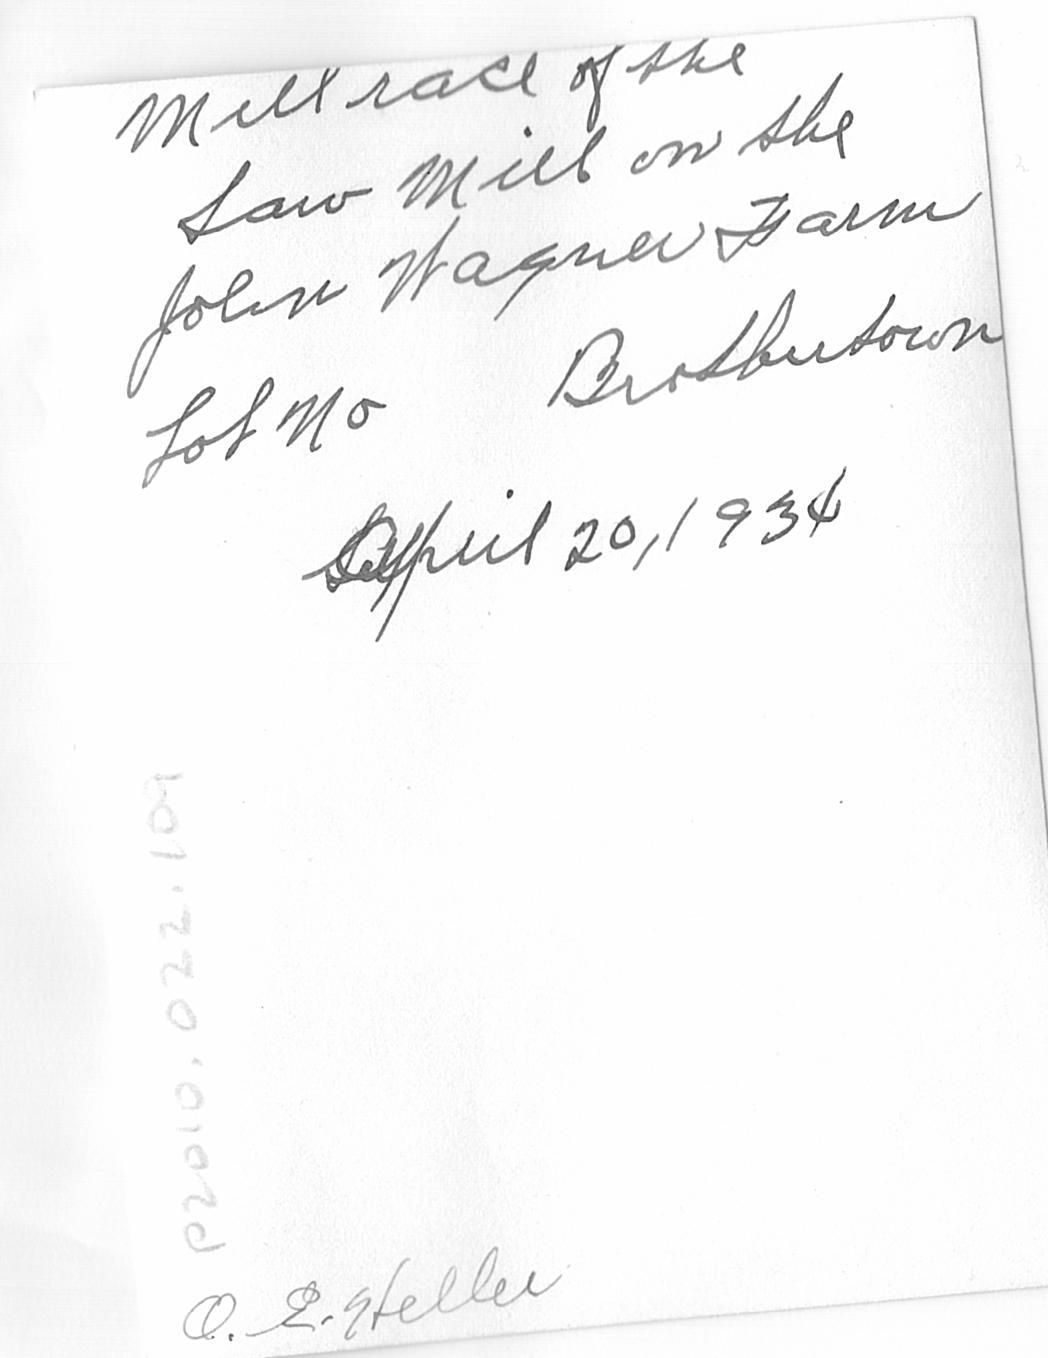 Mill race of the
Saw Mill on the
John Wagner Farm
Lot No Brothertown
April 20, 1934
P2010.022.109
O. E. Heller